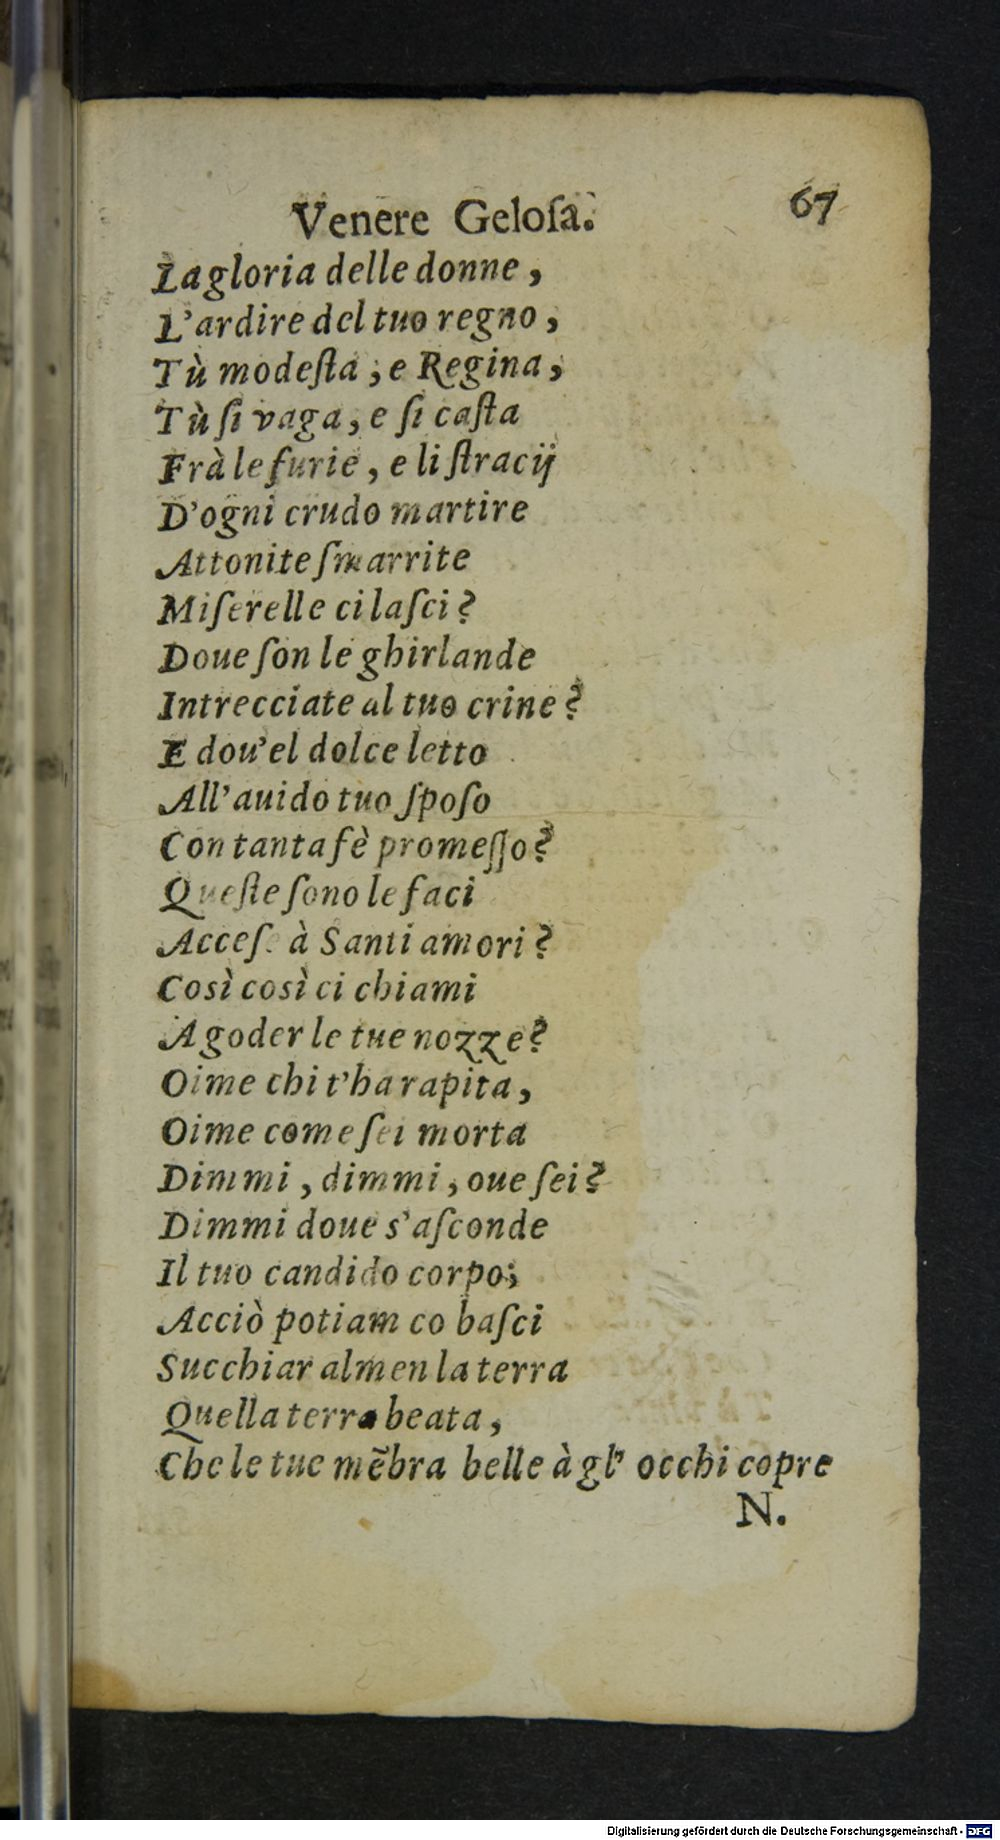 Venere Geloſa. 67
La gloria delle donne,
L'ardire del tuo regno,
Tù modeſta, e Regina,
Tù ſi vaga, e ſi caſta
Frà le furie, e li ſtracij
D'ogni crudo martire
Attonite ſmarrite
Miſerelle ci laſci?
Doue ſon le ghirlande
Intrecciate al tuo crine?
E dou'el dolce letto
All'auido tuo ſpoſo
Con tanta fè promeſſo?
Queſte ſono le faci
Acceſe à Santi amori?
Così così ci chiami
A goder le tue nozze?
Oime chi t'ha rapita,
Oime come ſei morta
Dimmi, dimmi, oue ſei?
Dimmi doue s'aſconde
Il tuo candido corpo;
Acciò potiam co baſci
Succhiar almen la terra
Quella terra beata,
Che le tue mẽbra belle à gl' occhi copre
N.
Digitalisierung gefördert durch die Deutsche Forschungsgemeinschaft - DFG